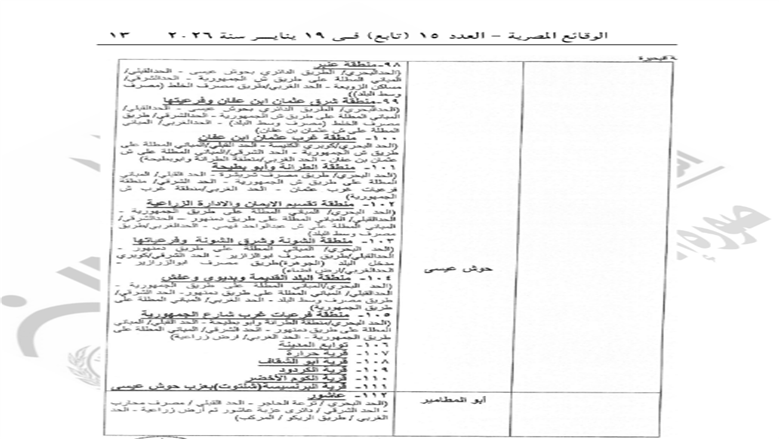 الوقائع المصرية – العدد ١٥ (تابع) فى ١٩ يناير سنة ٢٠٢٦ ١٣
ة البحيرة
٩٨- منطقة عنبر
(الحدالبحري/ الطريق الدائري بحوش عيسى - الحدالقبلي/
المباني المطلة على طريق ش الجمهورية - الحدالشرقي/
مساكن الزويعة - الحد الغربي/طريق مصرف الخلط (مصرف
وسط البلد))
٩٩- منطقة شرق عثمان ابن عفان وفرعيتها
(الحدالبحري/ الطريق الدائري بحوش عيسى - الحدالقبلي/
المباني المطلة على طريق ش الجمهورية - الحدالشرقي/ طريق
مصرف الخلط (مصرف وسط البلد) - الحدالغربي/ المباني
المطلة على ش عثمان بن عفان)
١٠٠- منطقة غرب عثمان ابن عفان
(الحد البحري/كوبري الكنيسة - الحد القبلي/المباني المطلة على
طريق ش الجمهورية - الحد الشرقي/ المباني المطلة على ش
عثمان بن عفان - الحد الغربي/منطقة الطرانة وأبوبطيحة)
١٠١- منطقة الطرانة وأبو بطيحة
(الحد البحري/ طريق مصرف شريشرة - الحد القبلي/ المباني
المطلة على طريق ش الجمهورية - الحد الشرقي/ منطقة
فرعيات غرب عثمان - الحد الغربي/منطقة غرب ش
الجمهورية)
١٠٢- منطقة تقسيم الإيمان والادارة الزراعية
(الحد البحري/ المباني المطلة على طريق الجمهورية -
الحدالقبلي/ المباني المطلة على طريق دمنهور - الحدالشرقي/
المباني المطلة على ش عبدالواحد فهمي - الحدالغربي/طريق
مصرف وسط البلد)
١٠٣- منطقة الشونة وشرق الشونة وفرعياتها
(الحد البحري/ المباني المطلة على طريق دمنهور -
الحدالقبلي/طريق مصرف ابوالزازير - الحد الشرقي/كوبري
مدخل البلد (الجوهرة)طريق مصرف ابوالزرازير -
الحدالغربي/ارض فضاء)
١٠٤- منطقة البلد القديمة وبديوي وعفش
(الحد البحري/المباني المطلة على طريق الجمهورية -
الحدالقبلي/ المباني المطلة على طريق دمنهور- الحد الشرقي/
طريق مصرف وسط البلد - الحد الغربي/ المباني المطلة على
طريق الجمهورية)
١٠٥- منطقة فرعيات غرب شارع الجمهورية
(الحد البحري/منطقة الطرانة وأبو بطيحة - الحد القبلي/ المباني
المطلة على طريق دمنهور - الحد الشرقي/ المباني المطلة على
طريق الجمهورية - الحد الغربي/ ارض زراعية)
١٠٦- توابع المدينة
١٠٧- قرية حرارة
١٠٨- قرية ابو الشقاف
١٠٩- قرية الكردود
١١٠- قرية الكوم الأخضر
١١١- قرية البرنسيسة(شلتوت)بعزب حوش عيسى
حوش عيسى
١١٢- عاشور
(الحد البحري / ترعة الحاجر - الحد القبلي / مصرف محارب
- الحد الشرقي / دائرى عزبة عاشور ثم أرض زراعية - الحد
الغربي / طريق الريكو / المركب)
أبو المطامير